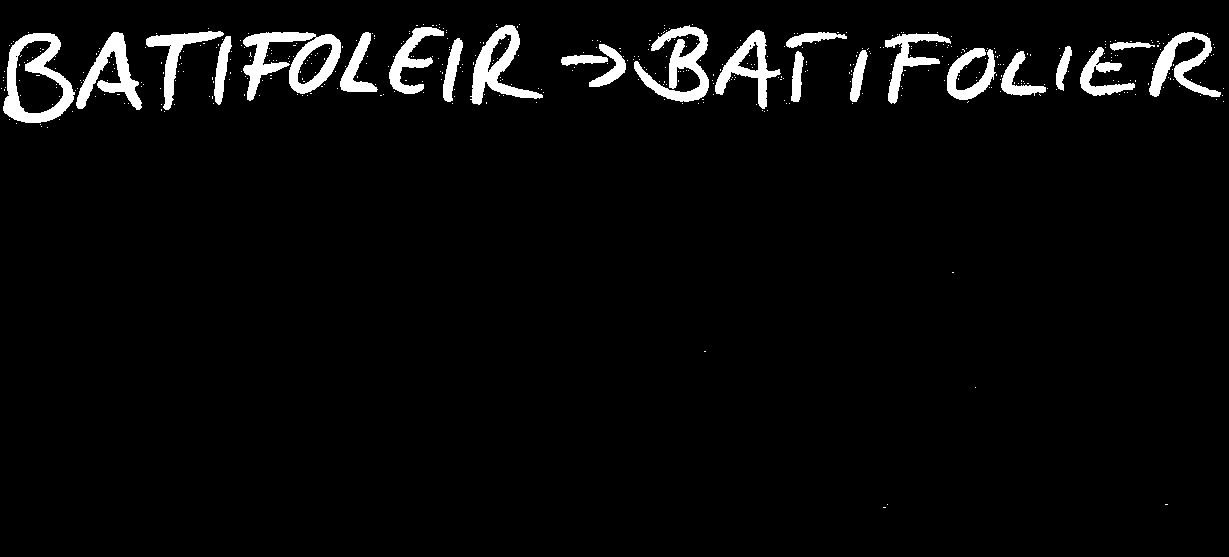 BATIFOLEIR → BATIFOLIER